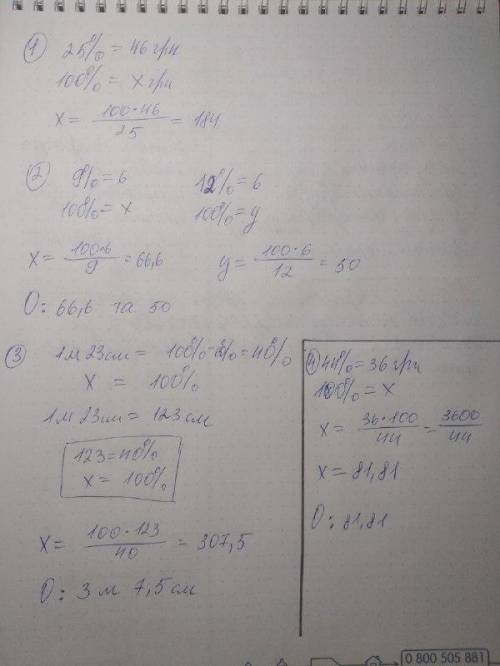 ① 25% = 46 грн
100% = x грн
x = 100·46/25 = 184
② 9% = 6
100% = x
x = 100·6/9 = 66,6
12% = 6
100% = y
y = 100·6/12 = 50
О: 66,6 та 50
③ 1м 23см = = 40%
x = 100%
1м 23см = 123 см
123 = 40%
x = 100%
x = 100·123/40 = 307,5
О: 3 м 7,5 см
④ 44% = 36 грн
100% = x
x = 36·100/44 = 3600/44
x = 81,81
О: 81,81
0 800 505 881